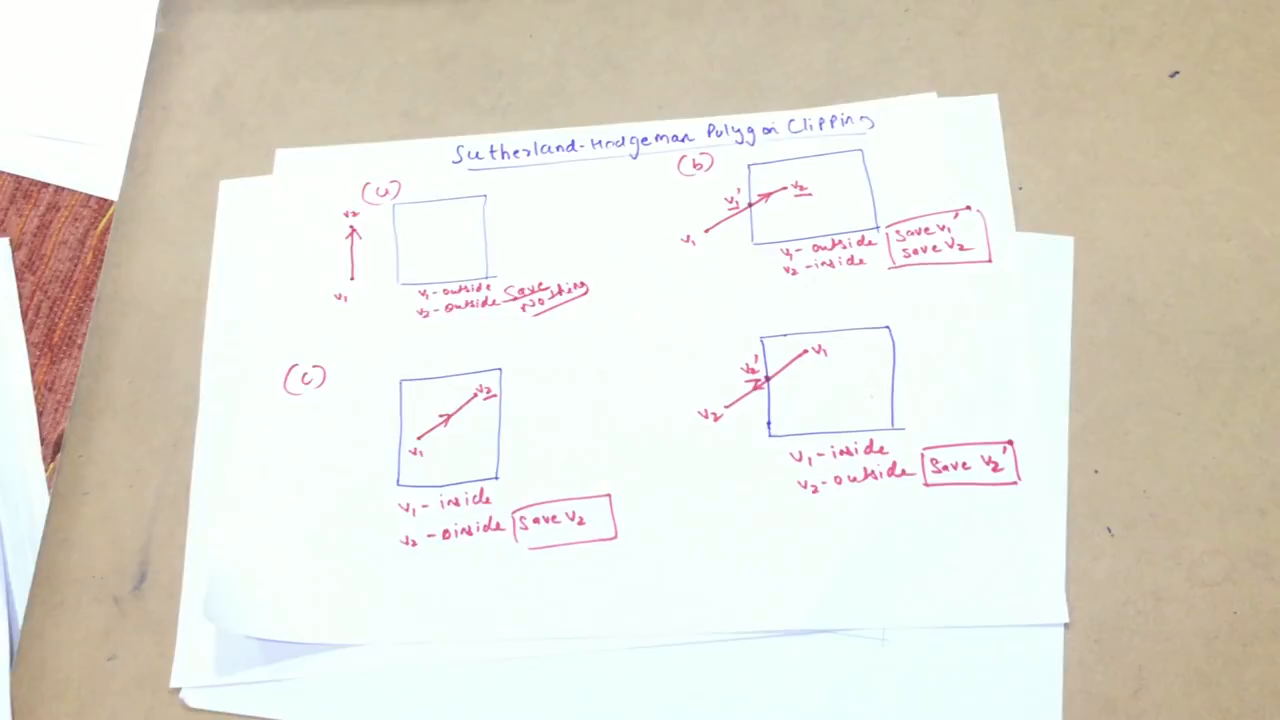 Sutherland-Hodgeman Polygon Clipping
(a)
v2
v1
v1-outside
v2-outside Save
Nothing
(b)
v1'
v2
v1
v1-outside
v2-inside
Save v1'
Save v2
(c)
v2
v1
v1-inside
v2-oinside Save v2
v2'
v1
v2
v1-inside
v2-outside Save v2'